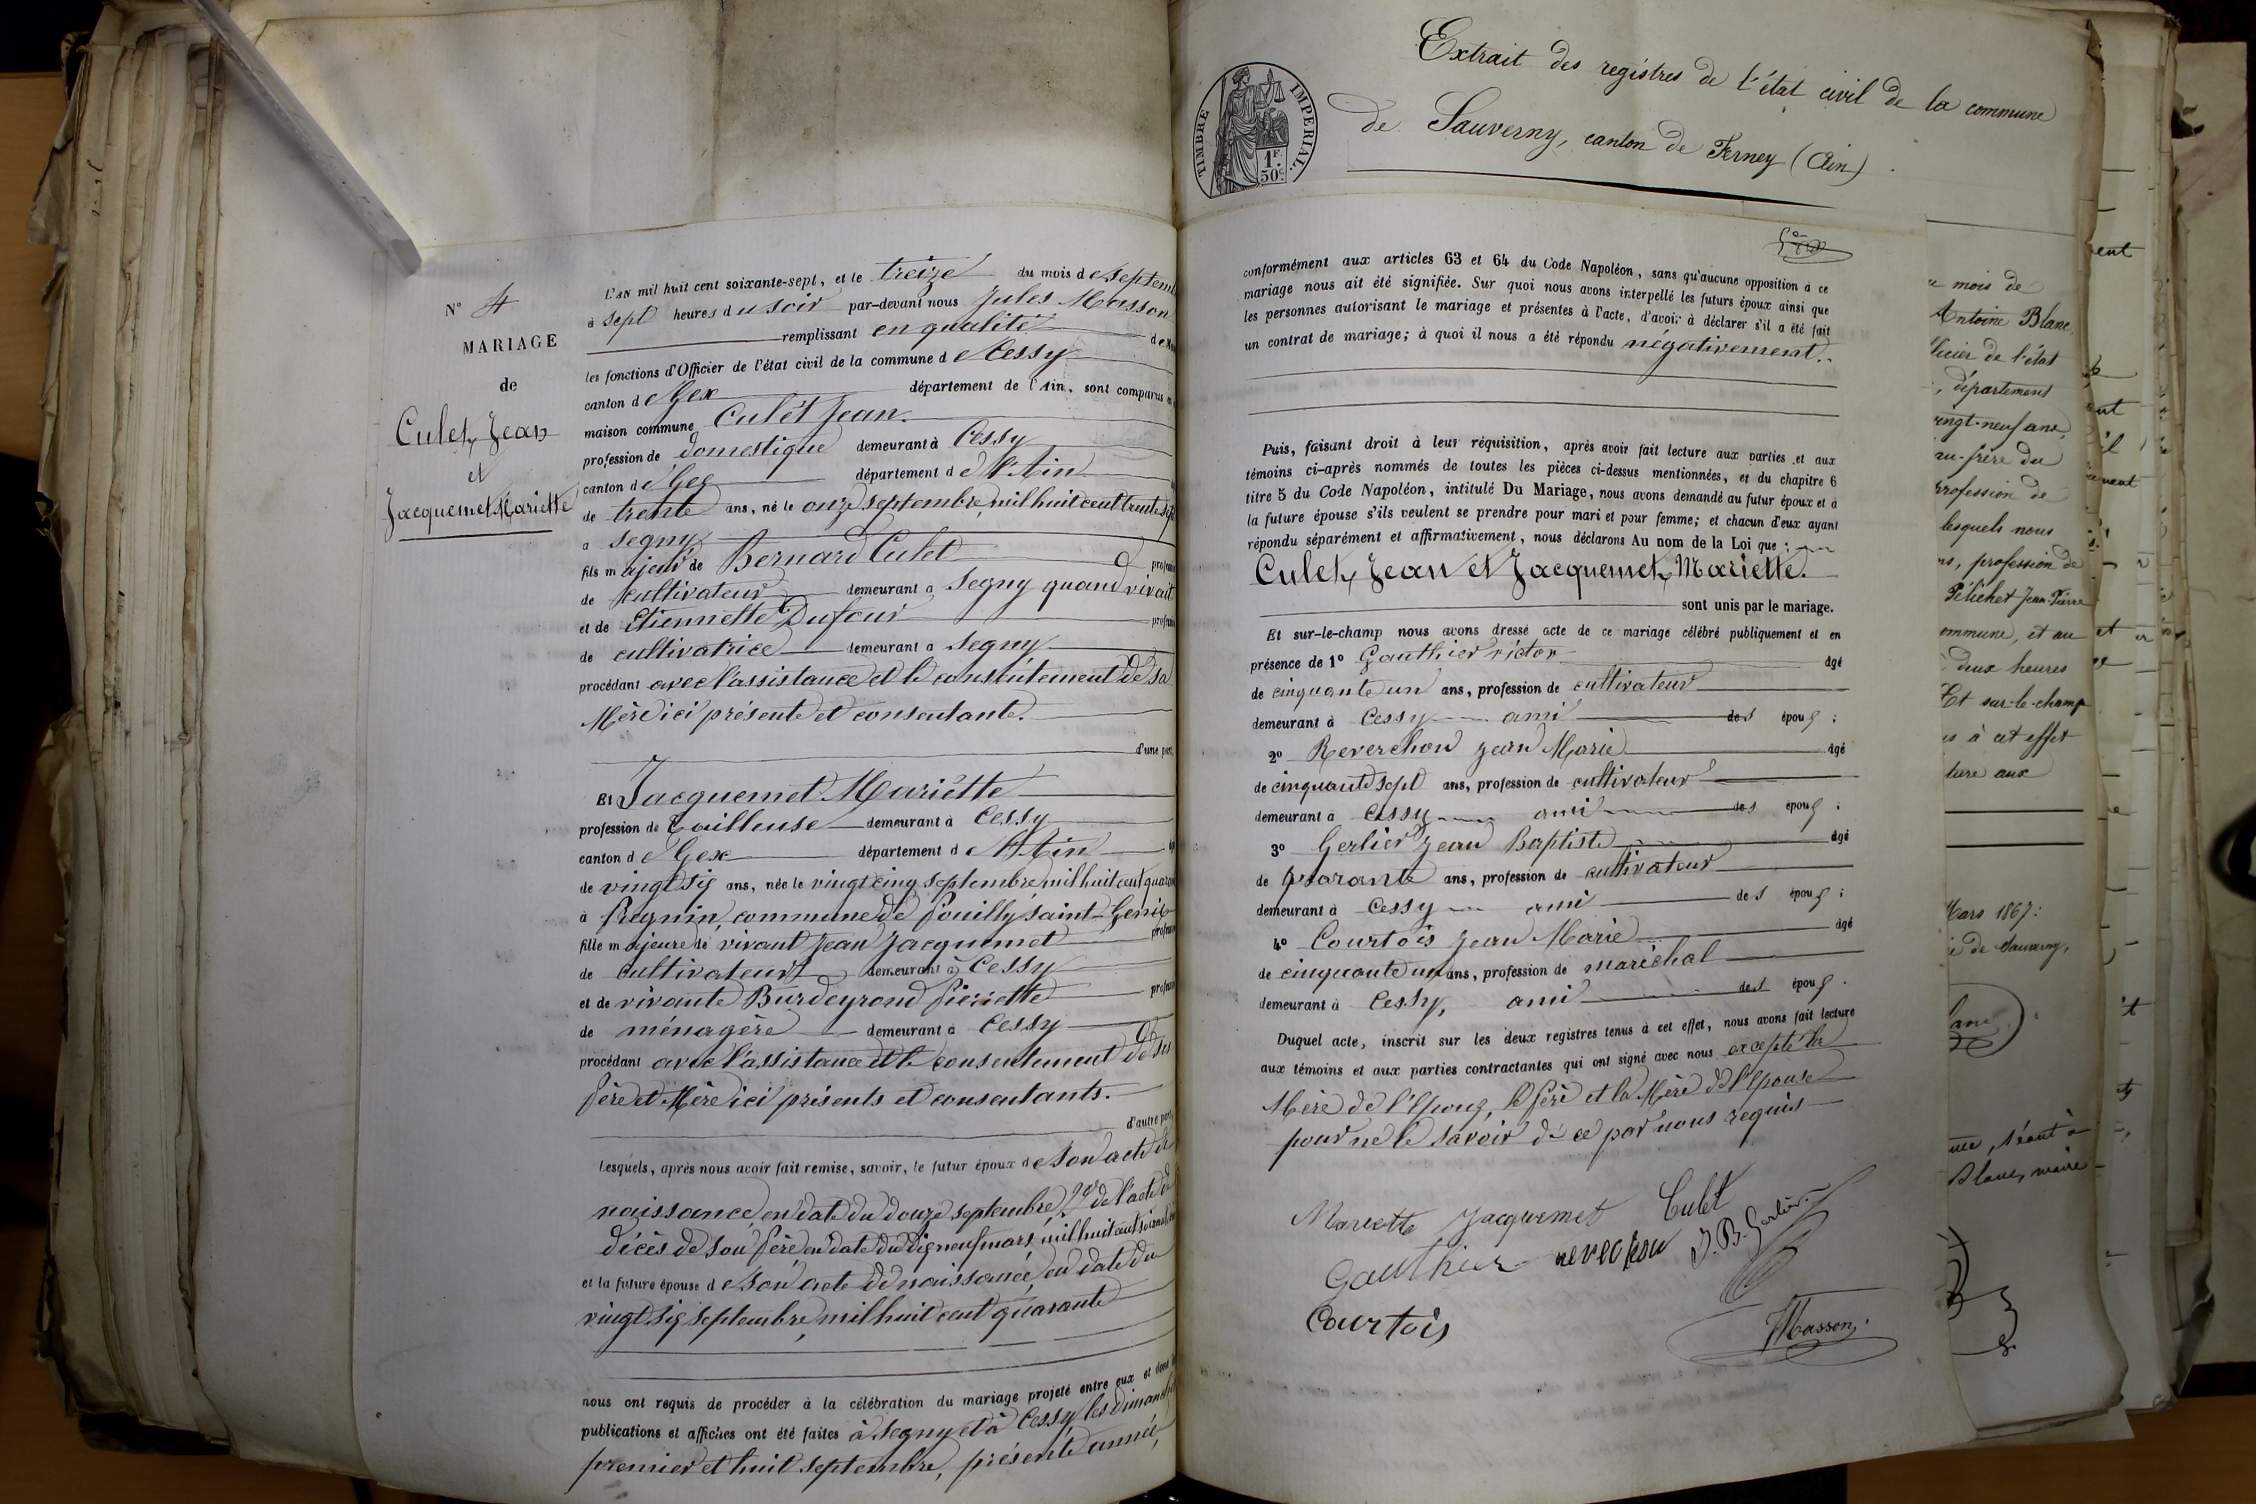 N° 4
MARIAGE
de
Culet, Jean
et
Jacquemet Mariette
L'AN mil huit cent soixante-sept, et le treize du mois de septem
à sept heures du soir par-devant nous Jules Masson
remplissant en qualité de
les fonctions d'Officier de l'état civil de la commune de Cessy
canton de Gex département de l'Ain, sont comparus en
maison commune Culet Jean.
profession de domestique demeurant à Cessy
canton de Gex département de l'Ain
de trente ans, né le onze septembre, mil huit cent trente sept
à Segny
fils majeur de Bernard Culet profession
de cultivateur demeurant à Segny quand vivait
et de Etiennette Dufour profession
de cultivatrice demeurant à Segny
procédant avec l'assistance et le consentement de sa
Mère ici présente et consentante.
d'une part,
Et Jacquemet Mariette
profession de Tailleuse demeurant à Cessy
canton de Gex département de l'Ain
de vingt six ans, née le vingt cinq septembre mil huit cent quarante
à Pregnin, commune de Pouilly Saint-Genix
fille majeure de vivant Jean Jacquemet profession
de cultivateur demeurant à Cessy
et de vivante Burdeyrond Pierrette profession
de ménagère demeurant à Cessy
procédant avec l'assistance et le consentement de ses
Père et Mère ici présents et consentants.
d'autre part,
Lesquels, après nous avoir fait remise, savoir, le futur époux de son acte de
naissance, en date du douze septembre, 2° de l'acte de
décès de son Père en date du dix neuf mars, mil huit cent
et la future épouse de son acte de naissance, en date du
vingt six septembre, mil huit cent quarante
nous ont requis de procéder à la célébration du mariage projeté entre eux et dont
publications et affiches ont été faites à Segny et à Cessy les dimanches
premier et huit septembre, présente année,
TIMBRE IMPERIAL
1F. 50c.
Extrait des registres de l'état civil de la commune
de Sauverny, canton de Ferney (Ain)
conformément aux articles 63 et 64 du Code Napoléon, sans qu'aucune opposition à ce
mariage nous ait été signifiée. Sur quoi nous avons interpellé les futurs époux ainsi que
les personnes autorisant le mariage et présentes à l'acte, d'avoir à déclarer s'il a été fait
un contrat de mariage; à quoi il nous a été répondu négativement.
Puis, faisant droit à leur réquisition, après avoir fait lecture aux parties et aux
témoins ci-après nommés de toutes les pièces ci-dessus mentionnées, et du chapitre 6
titre 5 du Code Napoléon, intitulé Du Mariage, nous avons demandé au futur époux et à
la future épouse s'ils veulent se prendre pour mari et pour femme; et chacun d'eux ayant
répondu séparément et affirmativement, nous déclarons Au nom de la Loi que :
Culet, Jean et Jacquemet, Mariette.
sont unis par le mariage.
Et sur-le-champ nous avons dressé acte de ce mariage célébré publiquement et en
présence de 1° Gauthier Victor âgé
de cinquante un ans, profession de cultivateur
demeurant à Cessy ami des époux ;
2° Reverchon Jean Marie âgé
de cinquante sept ans, profession de cultivateur
demeurant à Cessy ami des époux ;
3° Gerlier Jean Baptiste âgé
de quarante ans, profession de cultivateur
demeurant à Cessy ami des époux ;
4° Courtois Jean Marie âgé
de cinquante un ans, profession de maréchal
demeurant à Cessy, ami des époux.
Duquel acte, inscrit sur les deux registres tenus à cet effet, nous avons fait lecture
aux témoins et aux parties contractantes qui ont signé avec nous excepté la
Mère de l'Epoux, le Père et la Mère de l'Epouse
pour ne le savoir de ce par nous requis
Mariette Jacquemet Culet
Gauthier reverchon J.B. Gerlier
Courtois
JMasson
mois de
Antoine Blanc,
officier de l'état
, département
vingt-neuf ans,
au-frère du
profession de
lesquels nous
ns, profession de
Pélichet Jean-Pierre
commune, et au
deux heures
Et sur-le-champ
s à cet effet
ture aux
Mars 1867:
de Sauverny,
séant à
Blanc, maire